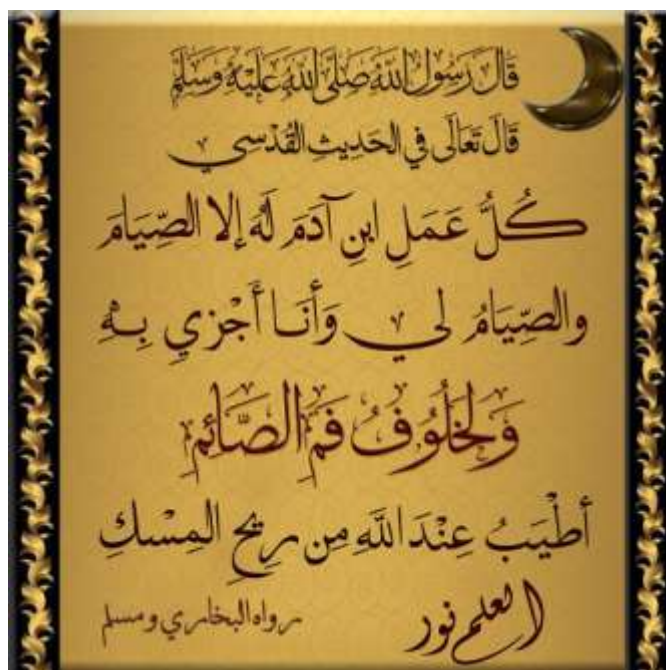 قَالَ رَسُولُ اللَّهِ صَلَّى اللَّهُ عَلَيْهِ وَسَلَّمَ
قَالَ تَعَالَى فِي الحَدِيثِ القُدْسِي
كُلُّ عَمَلِ ابنِ آدَمَ لَهُ إلا الصِّيَامَ
والصِّيَامُ لي وَأَنَا أَجْزِي بِهِ
وَلَخَلُوفُ فَمِ الصَّائِمِ
أَطْيَبُ عِنْدَ اللَّهِ مِن رِيحِ المِسْكِ
العلم نور
رواه البخاري ومسلم